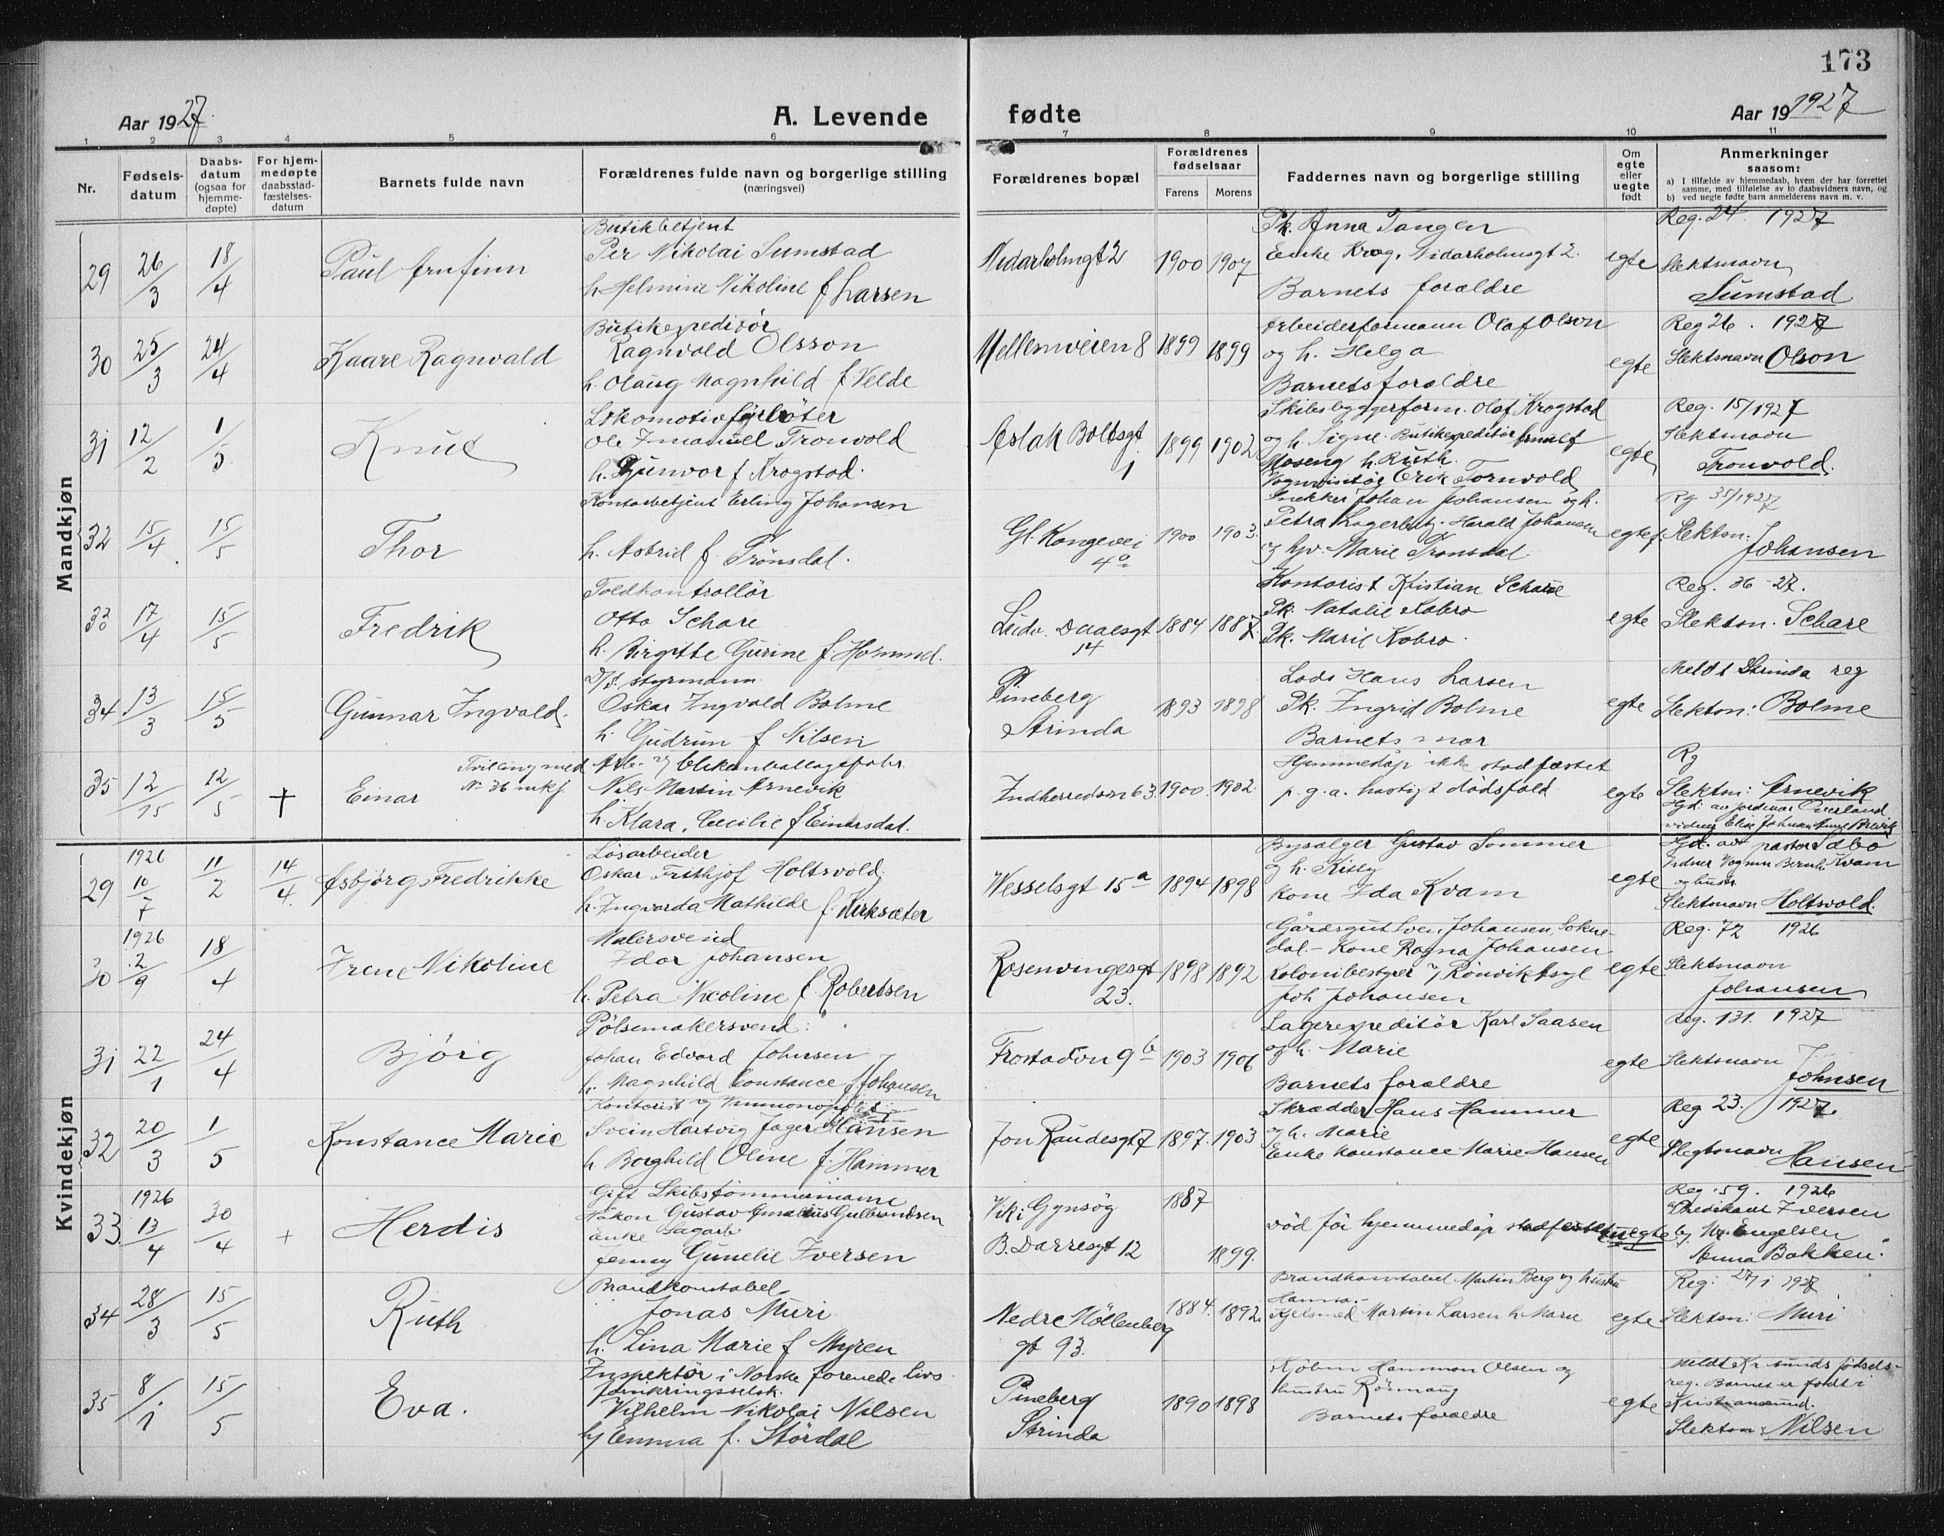 173
Aar 1927.
A. Levende fødte
Aar 19 1927
1 2 3 4 5 6 7 8 9 10 11
Nr.
Fødsels-
datum
Daabs-
datum
(ogsaa for
hjemme-
døpte)
For hjem-
medøpte
daabsstad-
fæstelses-
datum
Barnets fulde navn
Forældrenes fulde navn og borgerlige stilling
(næringsvei)
Forældrenes bopæl
Forældrenes
fødselsaar
Farens Morens
Faddernes navn og borgerlige stilling
Om
egte
eller
uegte
født
Anmerkninger
saasom:
a) I tilfælde av hjemmedaab, hvem der har forrettet
samme, med tilføielse av to daabsvidners navn, og
b) ved uegte fødte barn anmelderens navn m. v.
Mandkjøn
29 26/3 18/4 Paul Arnfinn
Butikbetjent
Per Nikolai Sumstad
h. Helmine Nikoline f Larsen
Nidarholmgt 2 1900 1907
Pk. Anna Tangen
Enke Krog, Nidarholmsgt 2.
Barnets foraldre
egte
Reg. 24 1927
Slektsnavn
Sumstad
30 25/3 24/4 Kaare Ragnvald
Butikexpeditør
Ragnvold Olsson
h. Olaug Magnhild f Velde
Mellemveien 8 1899 1899
Arbeiderformann Olaf Olson
og h. Helga
Barnets foraldre
egte
Reg 26. 1927
Slektsnavn Olson
31 12/2 1/5 Knut
Lokomotivfyrbøter
Ole Emanuel Tronvold
h. Gunvor f Krogstad.
Aslak Boltsgt 1 1899 1902
Skibsbyggerform. Olaf Krogstad
og h. Signe. Butikexpeditør Arnulf
Moseng h. Ruth.
Vognvisitør Erik Tornvold
egte
Reg. 15/1927
Slektsnavn
Tronvold.
32 15/4 15/5 Thor
Kontorbetjent Erling Johansen
h. Astrid f. Trønsdal.
Gl. Kongevei 4a 1900 1903.
Snekker Johan Johansen og h.
Petra Lagerbetj. Harald Johansen
og hv. Marie Tronsdal.
egtef.
Rg 35/1927
Slektsn:
Johansen
33 17/4 15/5 Fredrik
Toldkontrollør
Otto Schare
h. Birgitte Gurine f. Hommd.
Ludv. Daaesgt 14 1884 1887.
Kontorist Kristian Schare
Pk. Natalie Kobro
Pk. Marie Kobro.
egte
Reg. 36-27.
Slektsn. Schare
34 13/3 15/5 Gunnar Ingvald.
D/S. styrmann
Oskar Ingvald Bolme
h. Gudrun f Nilsen
Pineberg
Strinda 1893 1898
Lods Hans Larsen
Pk. Ingrid Bolme
Barnets mor
egte
Meldt Strinda reg
Slektsn: Bolme
35 12/15 12/5 + Einar
Tvilling med
Nr 36 mkj.
Arb. v/ blikemballagefabr.
Nils Martin Arnevik
h. Klara, Cecilie f Einarsdal.
Indherredsvn 63. 1900. 1902.
Hjemmedåp ikke stadfæstet
p. g. a. hastigt dødsfald
egte
Rg
Slektsn: Arnevik
Hjd: av jordmor Overland
vidner Elise Johnsen
Kvindekjøn
29 1926 10/7 11/2 14/4. Asbjørg Fredrikke
Løsarbeider
Oskar Frithjof Holtsvold.
h. Ingvarda Mathilde f. Kirksæter
Wesselsgt 15a 1894 1898
Bysælger Gustav Sommer
og h. Kitty
kone Ida Kvam
egte
Hjd. av pastor Ebbo
Vidner Vognm Bernh. Kvam
og hustr
Slektsnavn Holtsvold.
30 1926 2/9 18/4 Irene Nikoline
Malersvend
Idar Johansen
h. Petra Nicoline f. Robertsen
Rosenvingesgt 23. 1898 1892
Gårdsgut Sven Johansen, Sokne-
dal. - Kone Ragna Johansen
kolonibestyrer v/ Rönvik Asyl
Joh Johansen
egte
Reg. 72 1926
Slektsnavn
Johansen
31 22/1 24/4 Bjørg
Pølsemakersvend.
Johan Edvard Johnsen
h. Magnhild Constance f Johansen
Frostadvn 9b 1903 1906
Lagerexpeditör Karl Saasen
og h. Marie
Barnets foraldre
egte
Reg. 131. 1927
Slektsnavn
Johnsen
32 20/3 1/5 Konstance Marie
Kontorist v/ Vinmonopolet
Svein Hartvig Jager Hansen
h Borghild Oline f. Hammer
Jon Raudesgt 7 1897. 1903
Skrædder Hans Hammer
og h. Marie
Enke Konstance Marie Hansen
egte
Reg 23. 1927.
Slegtsnavn
Hansen
33. 1926 13/4 30/4 + Herdis
Gift Skibstömmermann
Håkon Gustav Gulbrandsen
enke
Jenny Gunelie Iversen
Viki Gynsøg 1887
B. Darresgt 12 1899.
död för hjemmedåp stadfestet
uegte
Reg. 59. 1926
Predikant Iversen
Engelsen
Anna Bakken.
34 28/3 15/5 Ruth
Brandkonstabel
Jonas Muri
h. Lina Marie f Myren
Nedre Möllenberg
gt 93. 1884. 1892.
Brandkonstabel Martin Berg og hustru
Hanna.
Kjelsmed Martin Larsen h. Marie
egte
Reg: 27/1 1927
Slektsn: Muri
35 8/1 15/5 Eva.
Inspektør i Norske forenede livs
forsikringsselsk.
Vilhelm Nikolai Nilsen
h/ Emma f. Stördal
Pineberg
Strinda 1890 1898
Kjøbm Hammon Olsen og
hustru Rösmaug
Barnets foraldre
egte
Meldt Kr.sunds fødsels-
reg. Barnet er født i
Kristiansund.
Slektsn: Nilsen